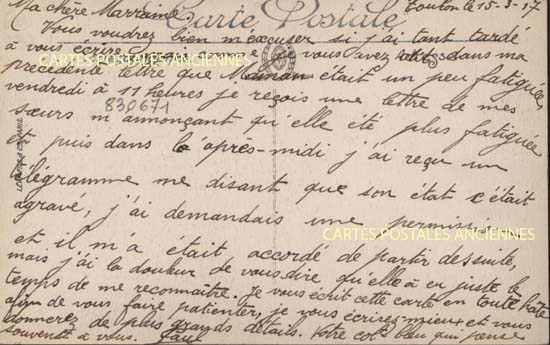 Toulon le 15-3-17
Ma chère Marraine.
Carte Postale
Vous voudrez bien m'excuser si j'ai tant tardé
à vous écrire, vous avez dans ma
CARTES POSTALES ANCIENNES
précédente lettre que Maman était un peu fatiguée,
vendredi à 11 heures je reçois une lettre de mes
830671
sœurs m'annonçant qu'elle été plus fatiguée
et puis dans la après-midi j'ai reçu un
télégramme me disant que son état c'était
agravé, j'ai demandais une permission
CARTES POSTALES ANCIENNES
et il m'a était accordé de partir de suite,
mais j'ai la douleur de vous dire, qu'elle à eu juste le
temps de me reconnaître. Je vous écrit cette carte en toute hâte
afin de vous faire patienter, je vous écrirez mieux et vous
donnerez de plus grands détails. Votre col bleu qui pense
souvent à vous.